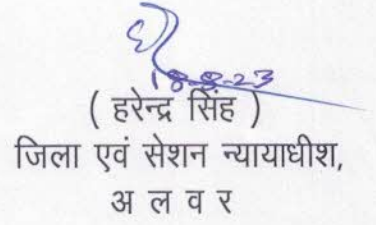 18-8-23
( हरेन्द्र सिंह )
जिला एवं सेशन न्यायाधीश,
अ ल व र